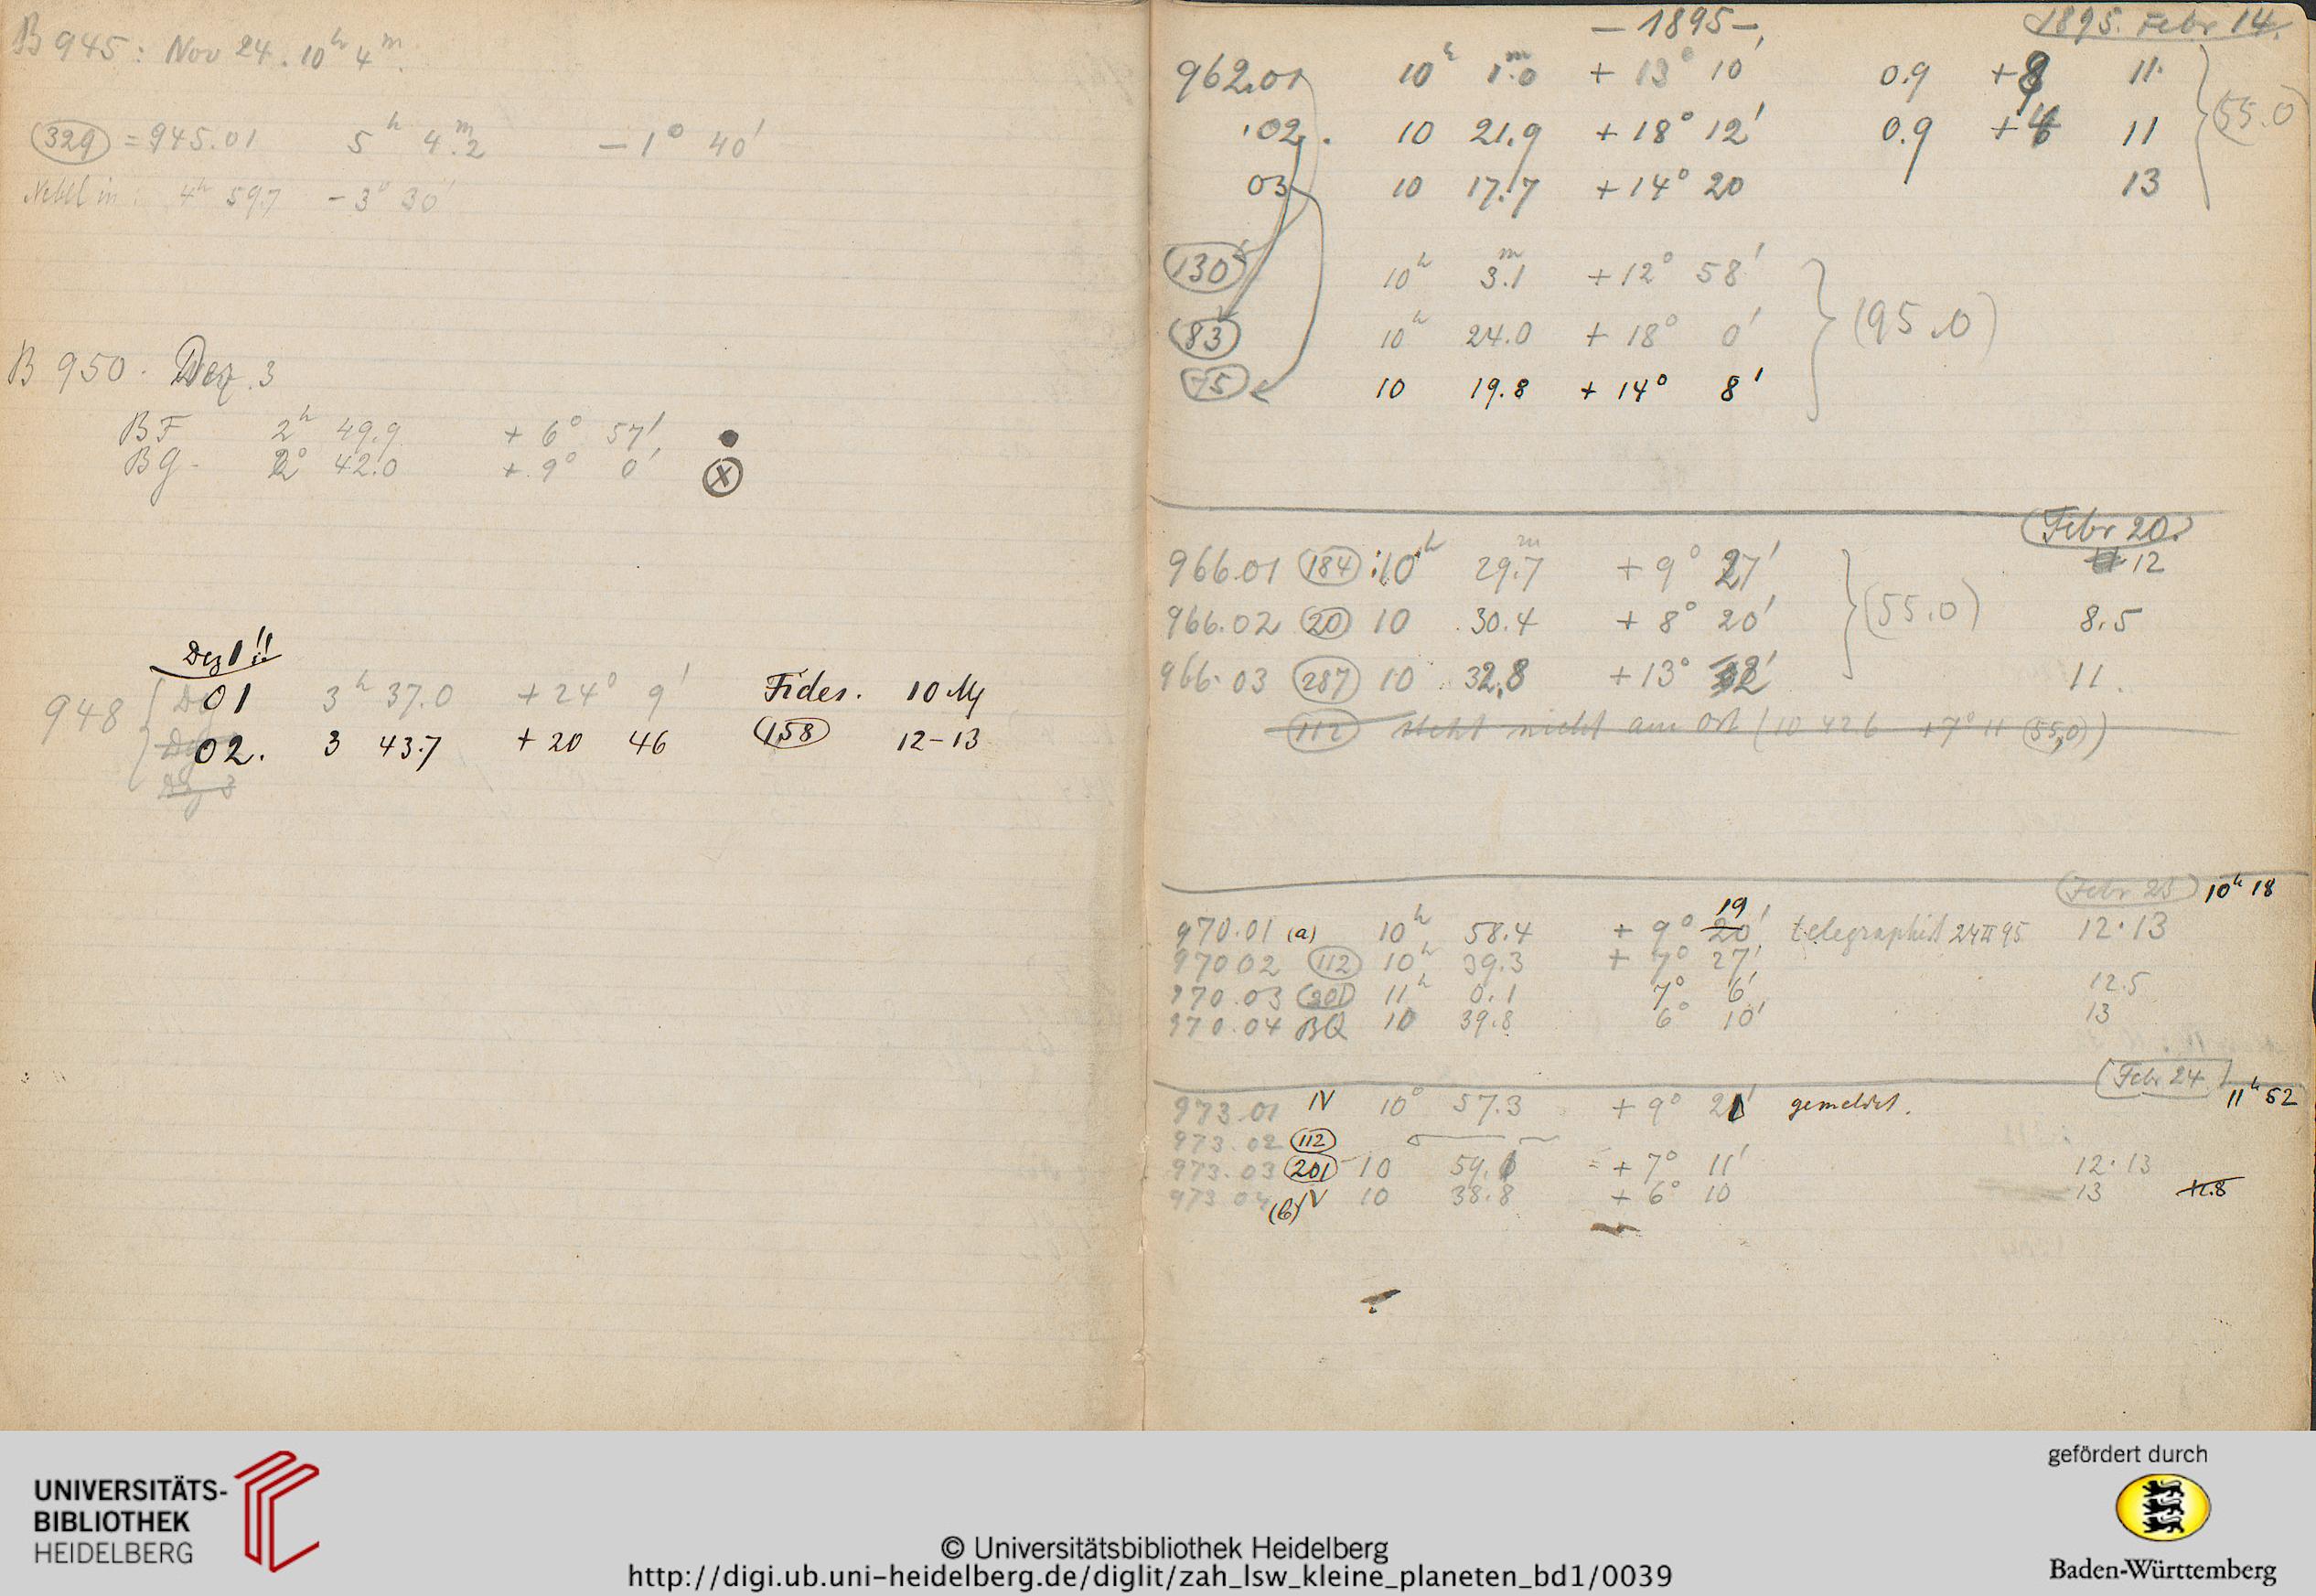 B 945: Nov 24. 10h 4m.
(329) = 945.01 5h 4m.2 −1° 40'
Nebel in: 4h 59.7 −3° 30'
B 950. Dez. 3
BF 2h 49.9 + 6° 57'
BG 2° 42.0 + 9° 0' ⊗
Dez 1!!
948 01 3h 37.0 + 24° 9' Fides. 10 M
02. 3 43.7 + 20 46 (158) 12–13
– 1895 –, 1895. Febr 14.
962.01 10h 1m.0 + 13° 10' 0.9 +8 11. (55.0)
.02. 10 21.9 + 18° 12' 0.9 11
03 10 17.7 + 14° 20 13
(130) 10h 3m.1 + 12° 58'
(83) 10h 24.0 + 18° 0' (95.0)
(75) 10 19.8 + 14° 8'
Febr 20.
966.01 (184) : 10h 29m.7 + 9° 27' 12
966.02 (20) 10 30.4 + 8° 20' (55.0) 8.5
966.03 (287) 10 32.8 + 13° 11.
(112) steht nicht am Ort (10 42.6 +7° 11 (55,0))
Febr 23 10h 18
970.01 (a) 10h 58.4 + 9° 20' 19 telegraphirt 24 II 95 12.13
970 02 (112) 10h 39.3 + 7° 27'
970.03 (201) 11h 0.1 7° 6' 12.5
970.04 BQ 10 39.8 6° 10' 13
Febr 24 11h 52
973.01 IV 10° 57.3 + 9° 21' gemeldet.
973.02 (112)
973.03 (201) 10 59. + 7° 11' 12.13
973 04 (b) IV 10 38.8 + 6° 10 13 12.8
UNIVERSITÄTS-
BIBLIOTHEK
HEIDELBERG
© Universitätsbibliothek Heidelberg
http://digi.ub.uni-heidelberg.de/diglit/zah_lsw_kleine_planeten_bd1/0039
gefördert durch
Baden-Württemberg